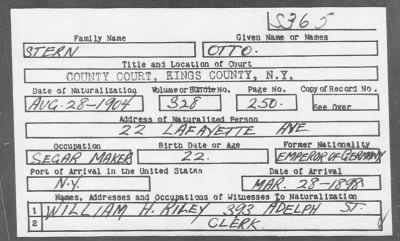 S365
Family Name Given Name or Names
STERN OTTO.
Title and Location of Court
COUNTY COURT, KINGS COUNTY, N.Y.
Date of Naturalization Volume or Bundle No. Page No. Copy of Record No.
AUG. 28-1904 328 250. See Over
Address of Naturalized Person
22 LAFAYETTE AVE
Occupation Birth Date or Age Former Nationality
SEGAR MAKER 22. EMPEROR OF GERMANY
Port of Arrival in the United States Date of Arrival
N.Y. MAR. 28-1898
Names, Addresses and Occupations of Witnesses To Naturalization
1 WILLIAM H. RILEY 393 ADELPH ST.
2 CLERK.